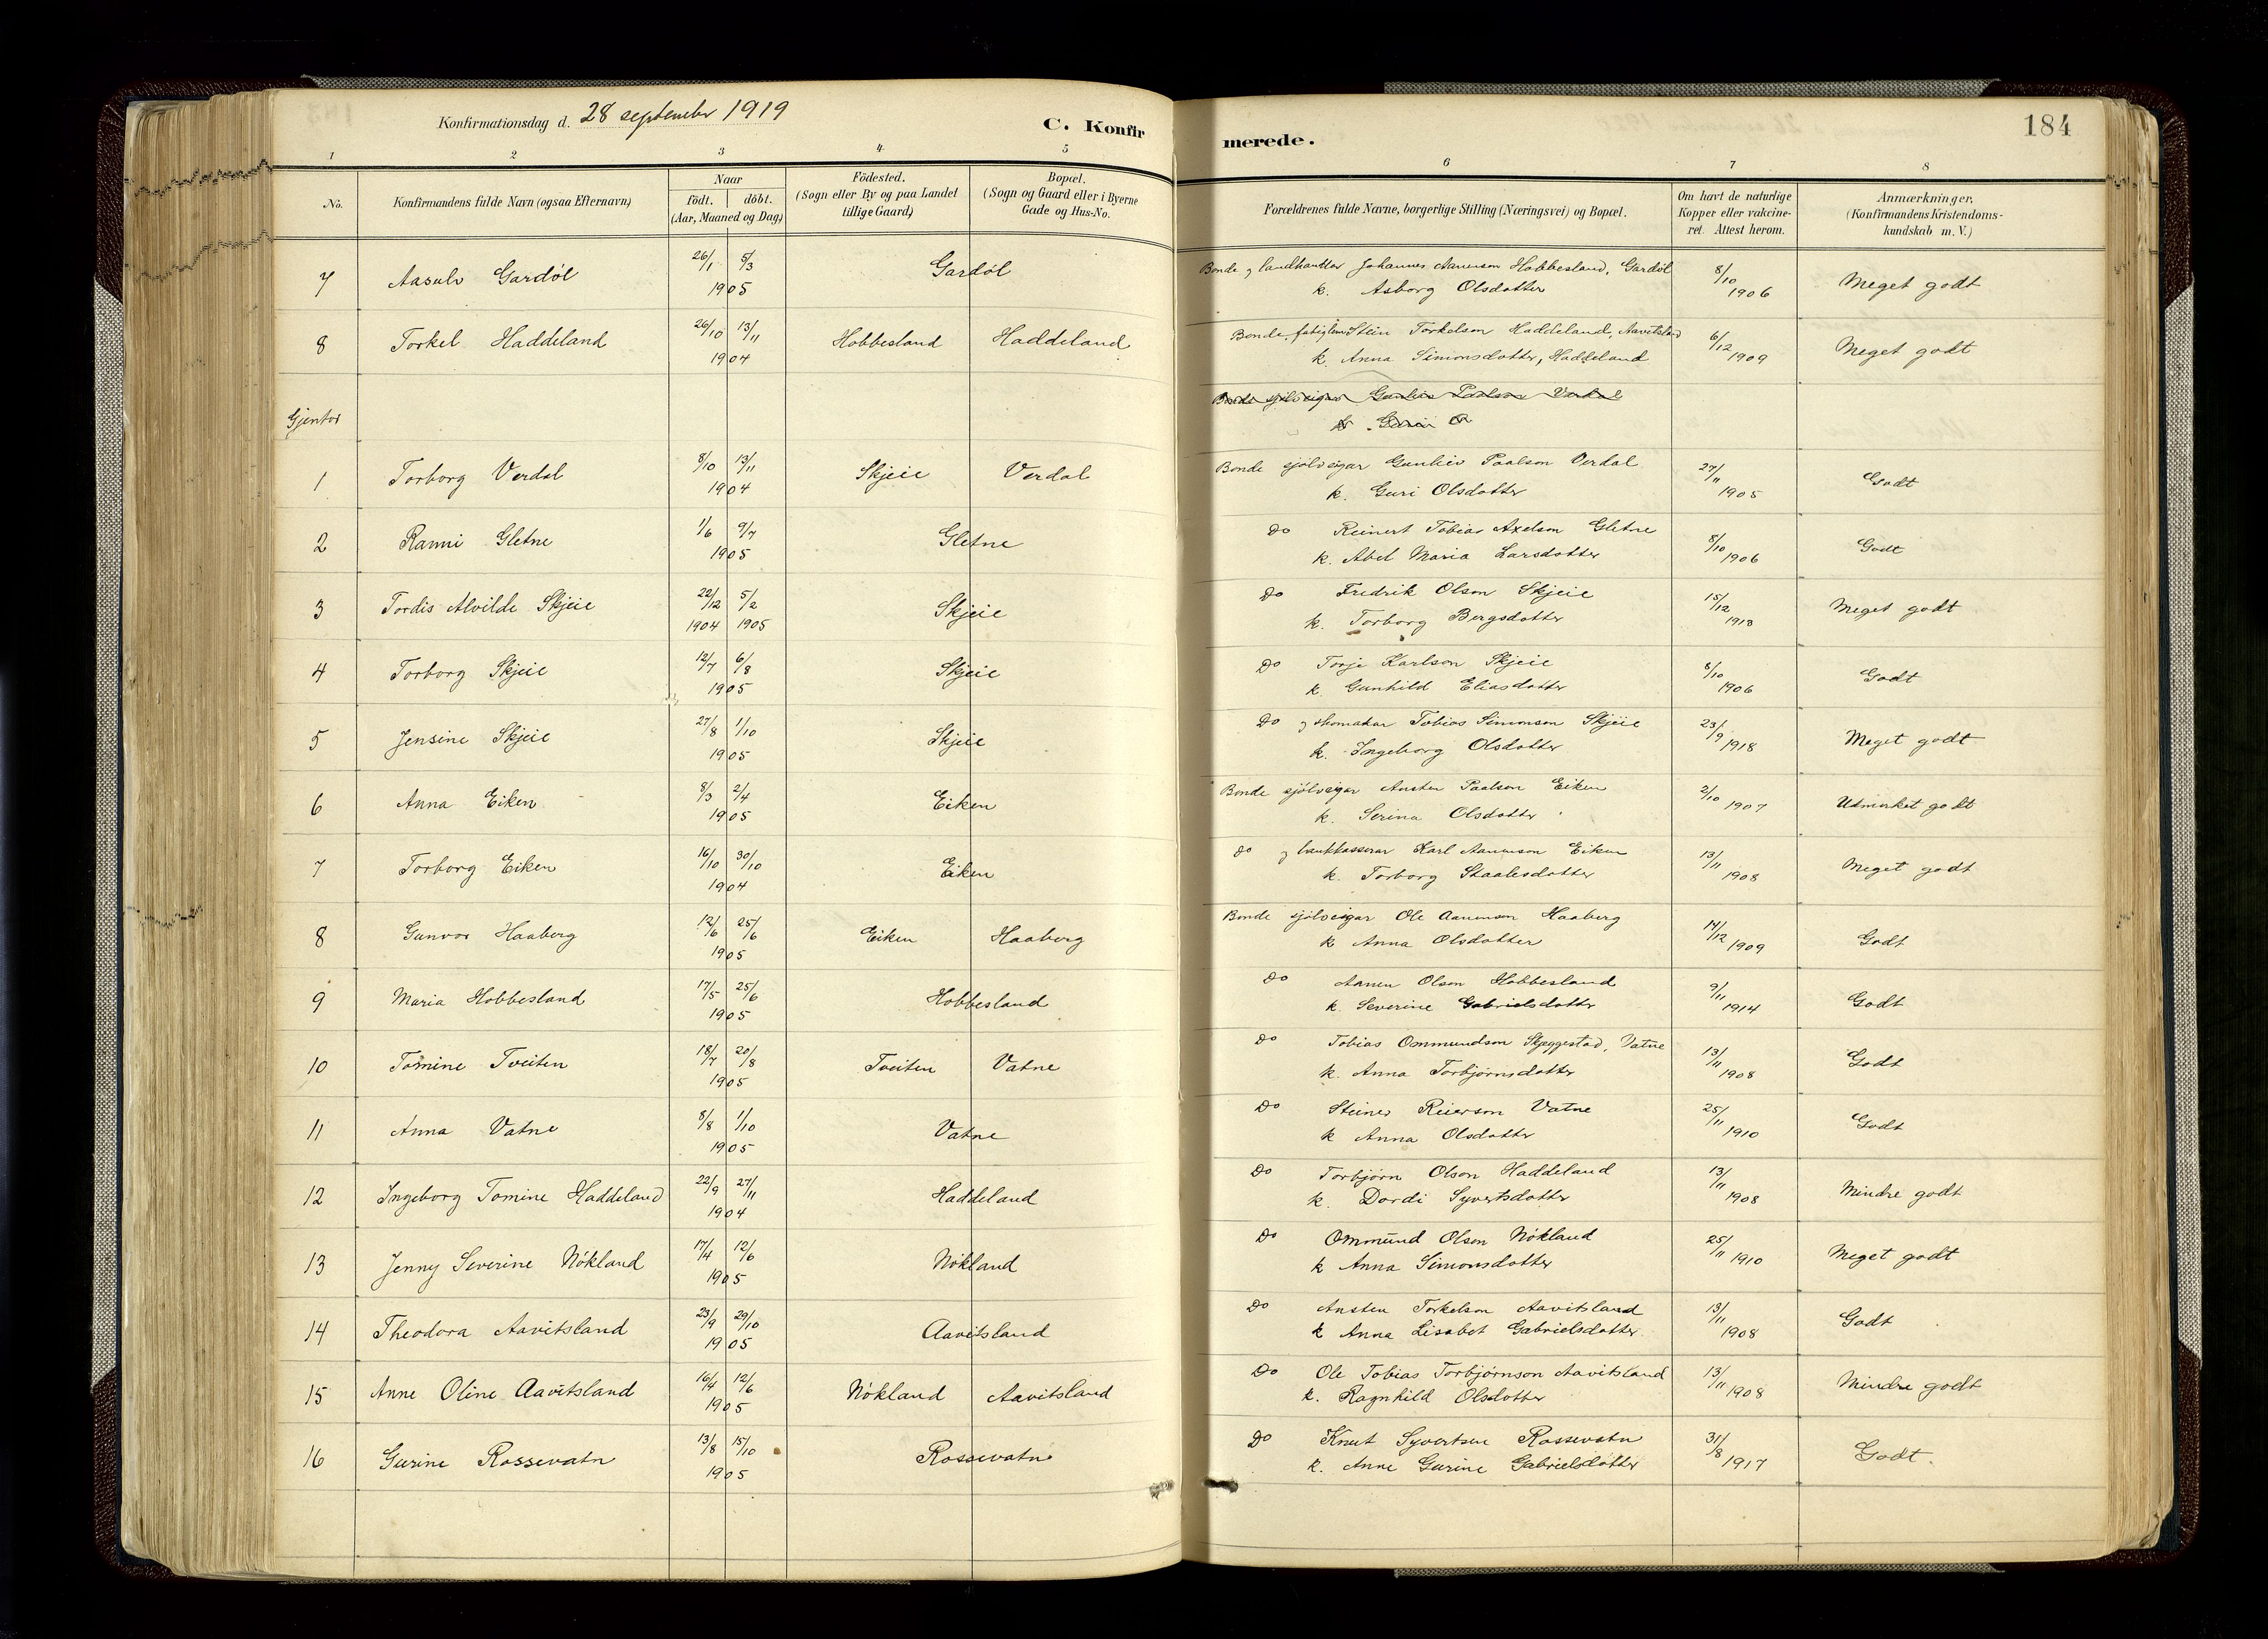 Konfirmationsdag d. 28 september 1919
C. Konfirmerede.
184
1 2 3 4 5 6 7 8
No.
Konfirmandens fulde Navn (ogsaa Efternavn)
Naar
födt. döbt.
(Aar, Maaned og Dag)
Födested.
(Sogn eller By og paa Landet
tillige Gaard)
Bopæl.
(Sogn og Gaard eller i Byerne
Gade og Hus-No.
Forældrenes fulde Navne, borgerlige Stilling (Næringsvei) og Bopæl.
Om havt de naturlige
Kopper eller vakcine-
ret. Attest herom.
Anmærkninger,
(Konfirmandens Kristendoms-
kundskab m. V.)
7 Aasulv Gardöl 26/1 5/3 1905 Gardöl Bonde og landhandlar Johannes Aanenson Hobbesland, Gardöl
k. Asborg Olsdotter 8/10 1906 Meget godt
8 Torkel Haddeland 26/10 13/11 1904 Hobbesland Haddeland Bonde, Stein Torkelson Haddeland, Aavitsland
k. Anna Simonsdotter, Haddeland 6/12 1909 Meget godt
Gjentor
Bonde sjölveigar Gunleiv Paalson Verdal
k. Guri O
1 Torborg Verdal 8/10 13/11 1904 Skjeie Verdal Bonde sjölveigar Gunleiv Paalson Verdal
k. Guri Olsdotter 27/11 1905 Godt
2 Ranni Gletne 1/6 9/7 1905 Gletne Do Reinert Tobias Axelson Gletne
k. Abel Maria Larsdotter 8/10 1906 Godt
3 Tordis Alvilde Skjeie 22/12 1904 5/2 1905 Skjeie Do Fredrik Olson Skjeie
k. Torborg Bergsdotter 15/12 1913 Meget godt
4 Torborg Skjeie 12/7 6/8 1905 Skjeie Do Torje Karlson Skjeie
k. Gunhild Eliasdotter 8/10 1906 Godt
5 Jensine Skjeie 27/8 1/10 1905 Skjeie Do og skomakar Tobias Simonson Skjeie
k. Ingeborg Olsdotter 23/9 1918 Meget godt
6 Anna Eiken 8/3 2/4 1905 Eiken Bonde sjölveigar Ansten Paalson Eiken
k. Serina Olsdotter 2/10 1907 Udmerket godt
7 Torborg Eiken 16/10 30/10 1904 Eiken Do og bankkasserar Karl Aanenson Eiken
k. Torborg Staalesdotter 13/11 1908 Meget godt
8 Gunvor Haaberg 12/6 25/6 1905 Eiken Haaberg Bonde sjölveigar Ole Aanenson Haaberg
k Anna Olsdotter 14/12 1909 Godt
9 Maria Hobbesland 17/5 25/6 1905 Hobbesland Do Aanen Olson Hobbesland
k. Severine Gabrielsdotter 9/11 1914 Godt
10 Tomine Tveiten 18/7 20/8 1905 Tveiten Vatne Do Tobias Ommundson Skjeggestad, Vatne
k. Anna Torbjörnsdotter 13/11 1908 Godt
11 Anna Vatne 8/8 1/10 1905 Vatne Do Steiner Reierson Vatne
k Anna Olsdotter 25/11 1910 Godt
12 Ingeborg Tomine Haddeland 22/9 27/11 1904 Haddeland Do Torbjörn Olson Haddeland
k. Dordi Syvertsdotter 13/11 1908 Mindre godt
13 Jenny Severine Nökland 17/4 12/6 1905 Nökland Do Ommund Olson Nökland
k Anna Simonsdotter 25/11 1910 Meget godt
14 Theodora Aavitsland 23/9 29/10 1905 Aavitsland Do Ansten Torkelson Aavitsland
k Anna Lisabet Gabrielsdotter 13/11 1908 Godt
15 Anne Oline Aavitsland 16/4 12/6 1905 Nökland Aavitsland Do Ole Tobias Torbjörnson Aavitsland
k. Ragnhild Olsdotter 13/11 1908 Mindre godt
16 Gurine Rossevatn 13/8 15/10 1905 Rossevatn Do Knut Syvertsen Rossevatn
k. Anne Gurine Gabrielsdotter 31/8 1917 Godt.